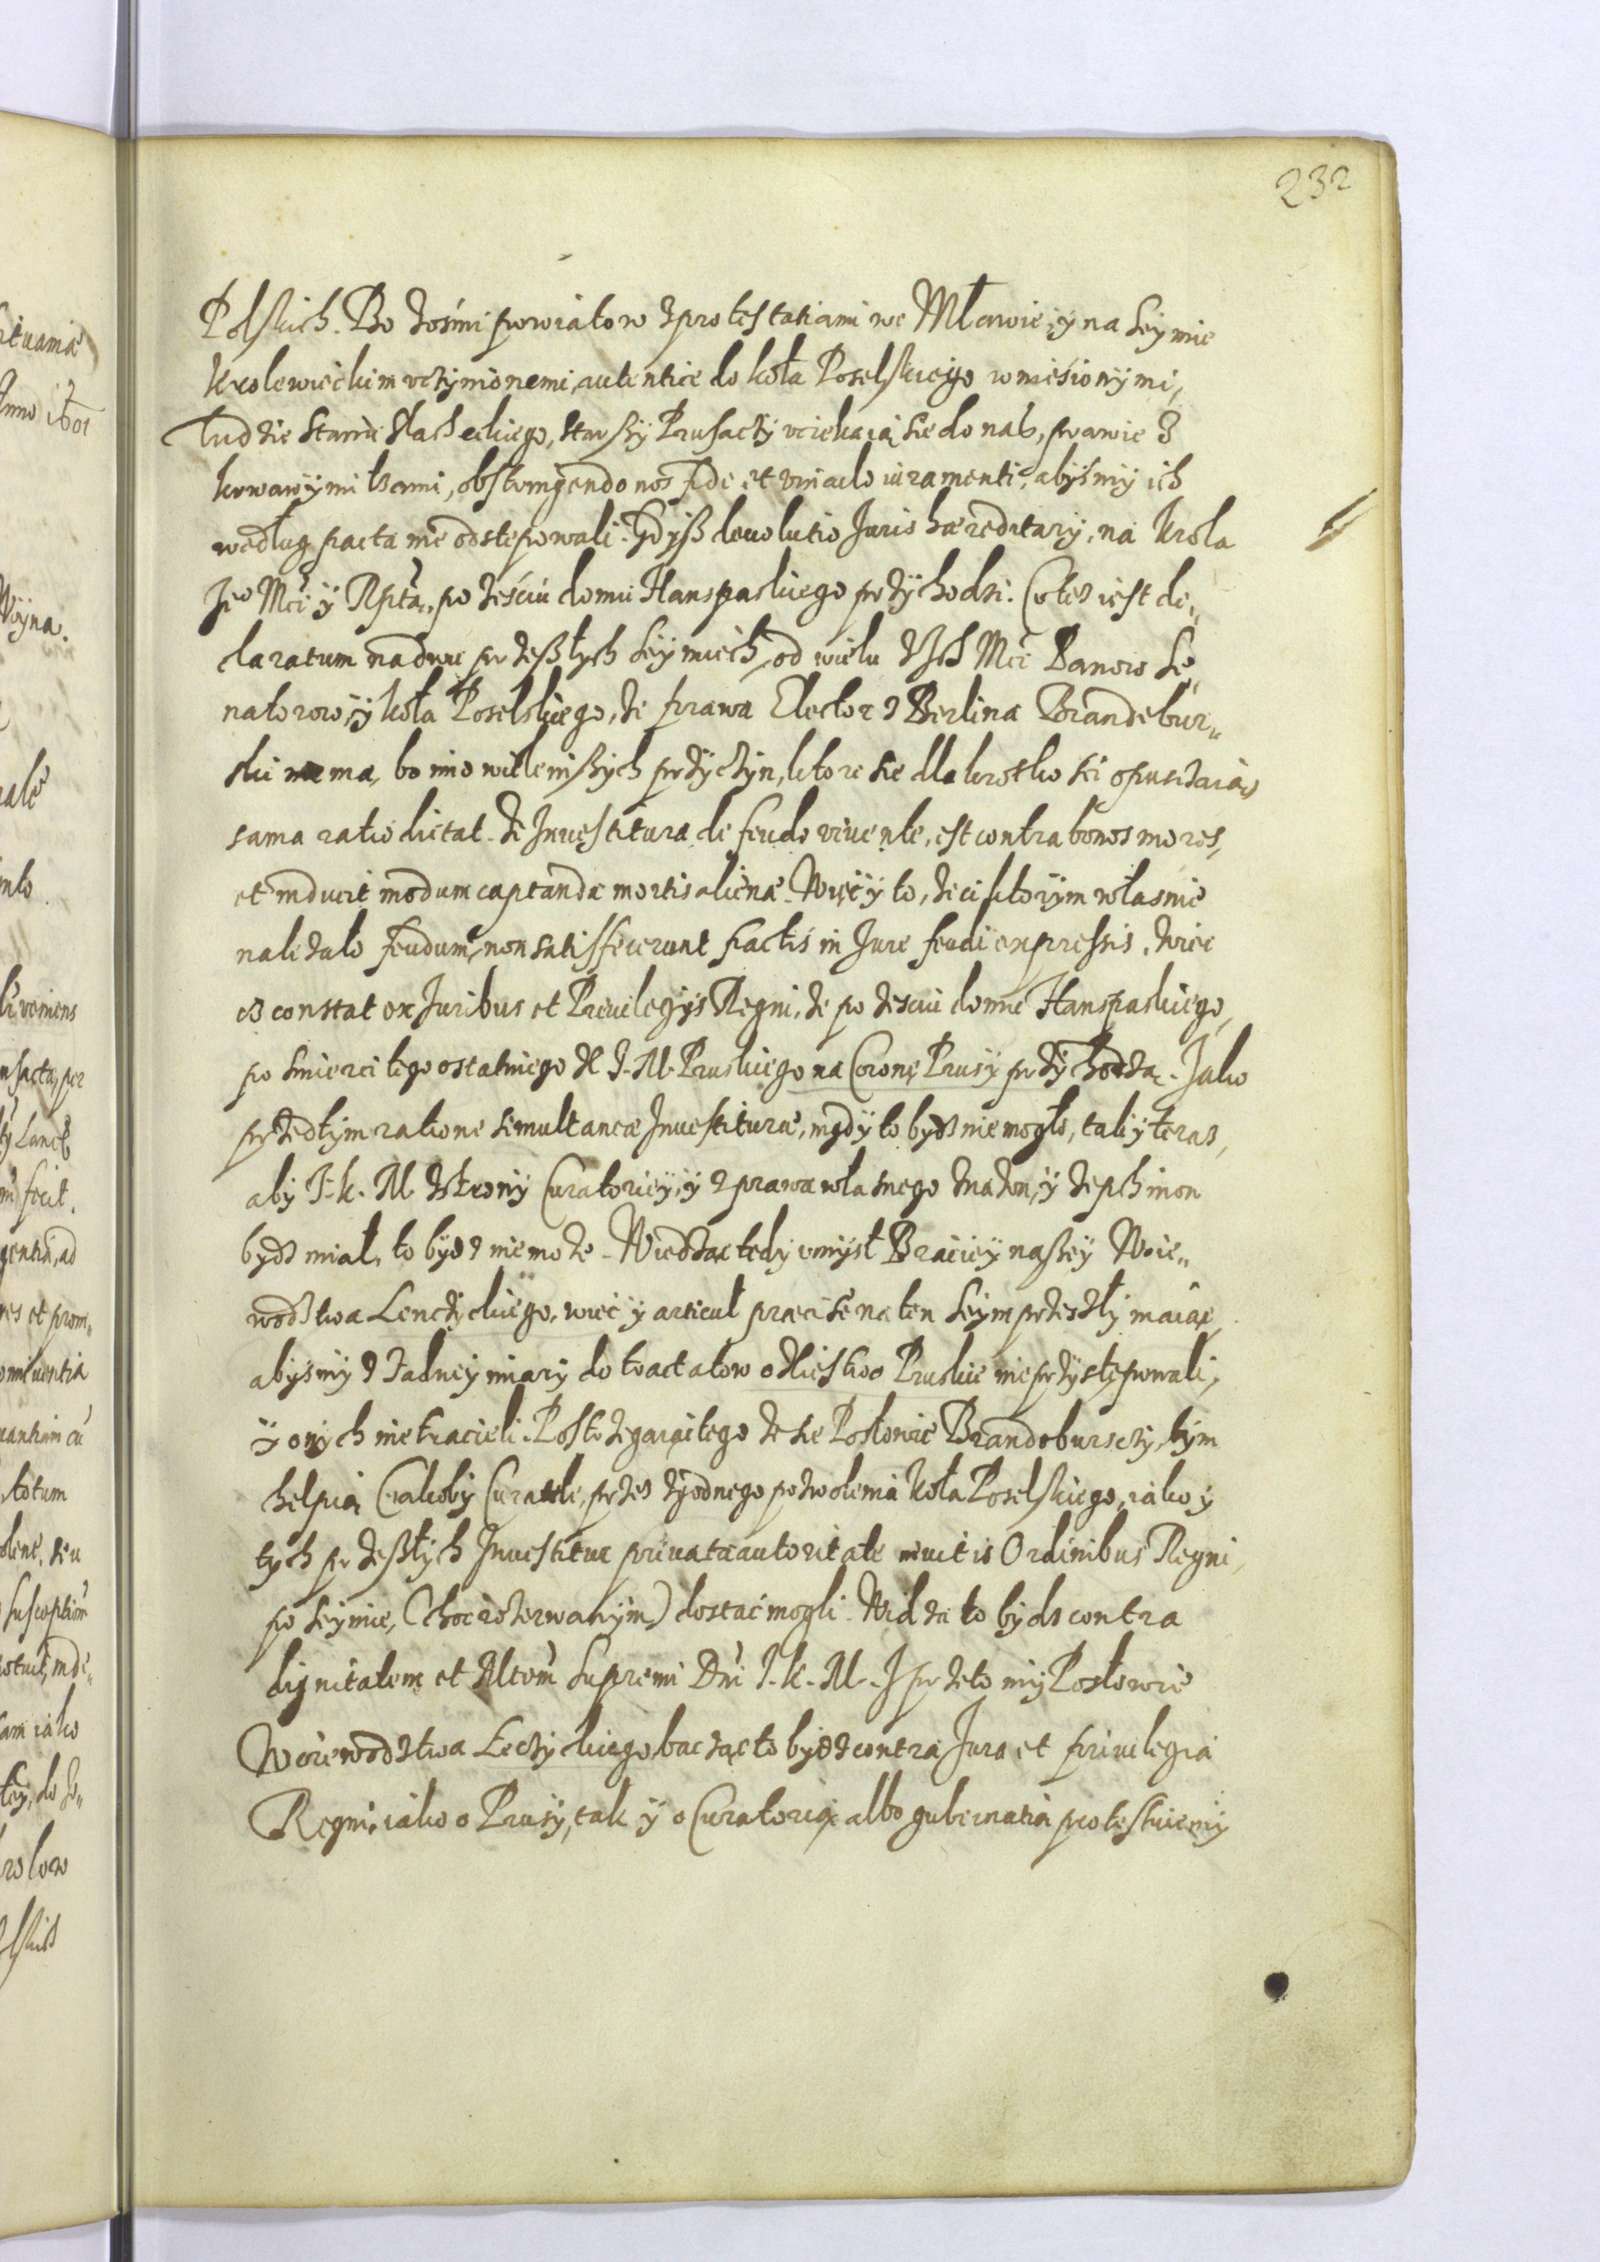 232
Polskich. Bo z ośmi powiatow z protestatiami we Mławie, y na Seymie
Krolewieckim vczynionemi, autentice do koła Poselskiego wniesionymi,
ludzie stanu Slacheckiego, starszy Prusacy vciekaią sie do nas, prawie z
krwawymi łzami, obstringendo nos fide et vinculo iuramenti, abysmy ich
według pacta nie odstępowali. Gdyß deuolutio Juris hæreditarij, na Krola
Jeo Mci y Rptą, po ześciu domu Hanspaskiego przychodzi. Co tez iest de„
claratum na dwu przeßłych Seymiech, od wielu z Jch Mci Panow Se„
natorow, y koła Poselskiego, ze prawa Elector z Berlina Brandebur„
ski nie ma, bo imo wiele inßych przyczyn, ktore sie dla krotkosci opusczaią,
sama ratio dictat. ze Inuestitura de feudo viuente, est contra bonos mores,
et inducit modum captandæ mortis alienæ. Więc y to, ze ci ktorym własnie
nalezało feudum, non satisfecerunt pactis in Jure feudi expressis, wiec
ex constat ex Juribus et Priuilegijs Regni, ze po zesciu domu Hanspaskiego,
po smierci tego ostatniego X J. M. Pruskiego na Coronę Prusy przychodzą. Jako
przedtym ratione simultaneæ Inuestituræ, nigdy to bydz nie mogło, tak y teraz,
aby J. K. M. z strony Curatoriey, y z prawa własnego znadon, y zepchnion
bydz miał, to bydz nie moze. Wiedząc tedy vmysł Braciey naßey Woie„
wodztwa Lenczyckiego, wiec y articuł præcise na ten Seym przeszły maiąc,
abysmy z zadney miary do tractatow o Xięstwo Pruskie nie przystępowali,
y onych nie tracieli. Postrzegaiąc tego ze sie Posłowie Brandobursczy, tym
chełpią (iakoby Curatele, przez zgodnego pozwolenia Koła Poselskiego, iako y
tych przeßłych Inuestitur priuata autoritate inuitis Ordinibus Regni,
po Seymie, (choc rozerwanym) dostać mogli. Widzą to bydz contra
dignitatem et Altom̃ Supremi Dñi J. K. M. J przeto my Posłowie
Woiewodztwa Łeczyckiego, bacząc to bydz contra Jura et priuilegia
Regni, iako o Prusy, tak y o Curatorią albo gubernatią protestuiemy